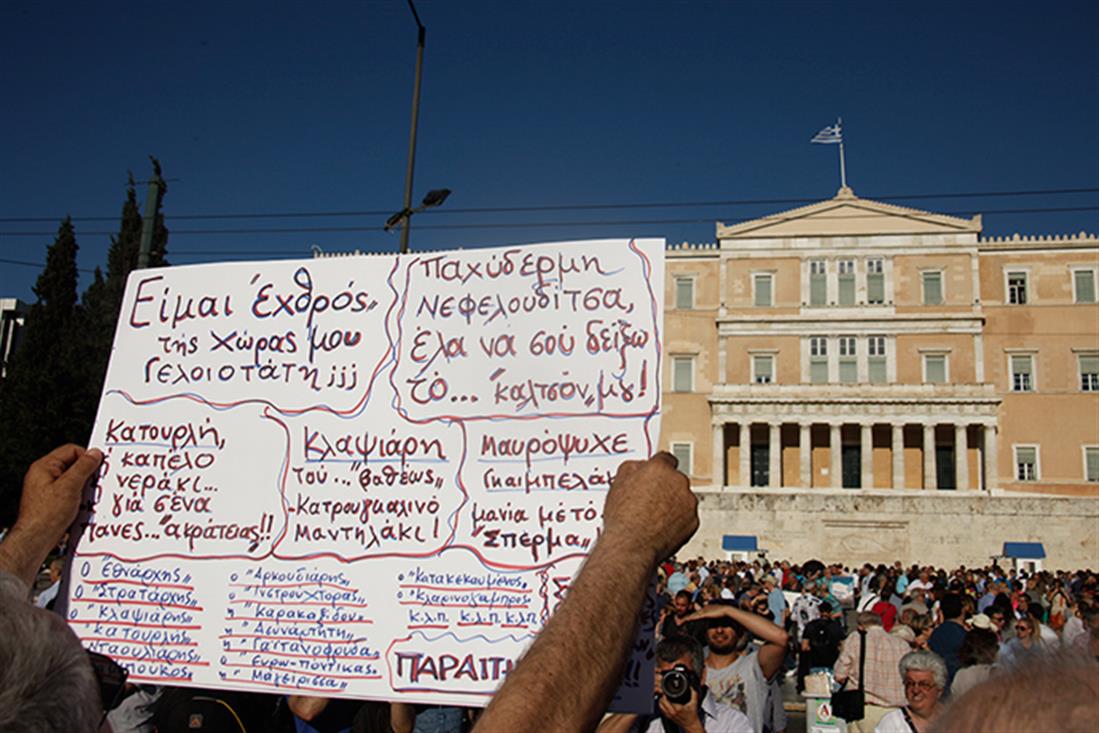 Είμαι "έχθρός"
της χώρας μου
Γελοιοτάτη ¡¡¡
Παχύδερμη
Νεφελουδίτσα,
έλα νά σού δείξω
τό... "καλτσόν" μ𝛶!
Κατουρλή,
καπέλο
νεράκι...
γιά σένα
"ακράτειας"!!
Κλαψιάρη
τού... "βαθέως"
-Κατρουγκαλινό
Μαντηλάκι!
Μαυρόψυχε
μανία μέ τό
"Σπέρμα"
ο "Εθνάρχης"
ο "Στρατάρχης"
ο "Κλαψιάρης"
"Κατουρλής"
"Νταουλιάρης"
ο "Αρκουδιάρης"
ο "Ινστρούχτορας"
η "Καρακαξιδου"
η "Αεναρτητη"
η "Γαϊτανοφούδα"
η "Ευρω-πόντικας"
η "Μαγείρισσα"
ο "Κατακεκουμένος"
ο "Κλαρινογαμπρος"
κ.λ.π κ.λ.π κ.λπ